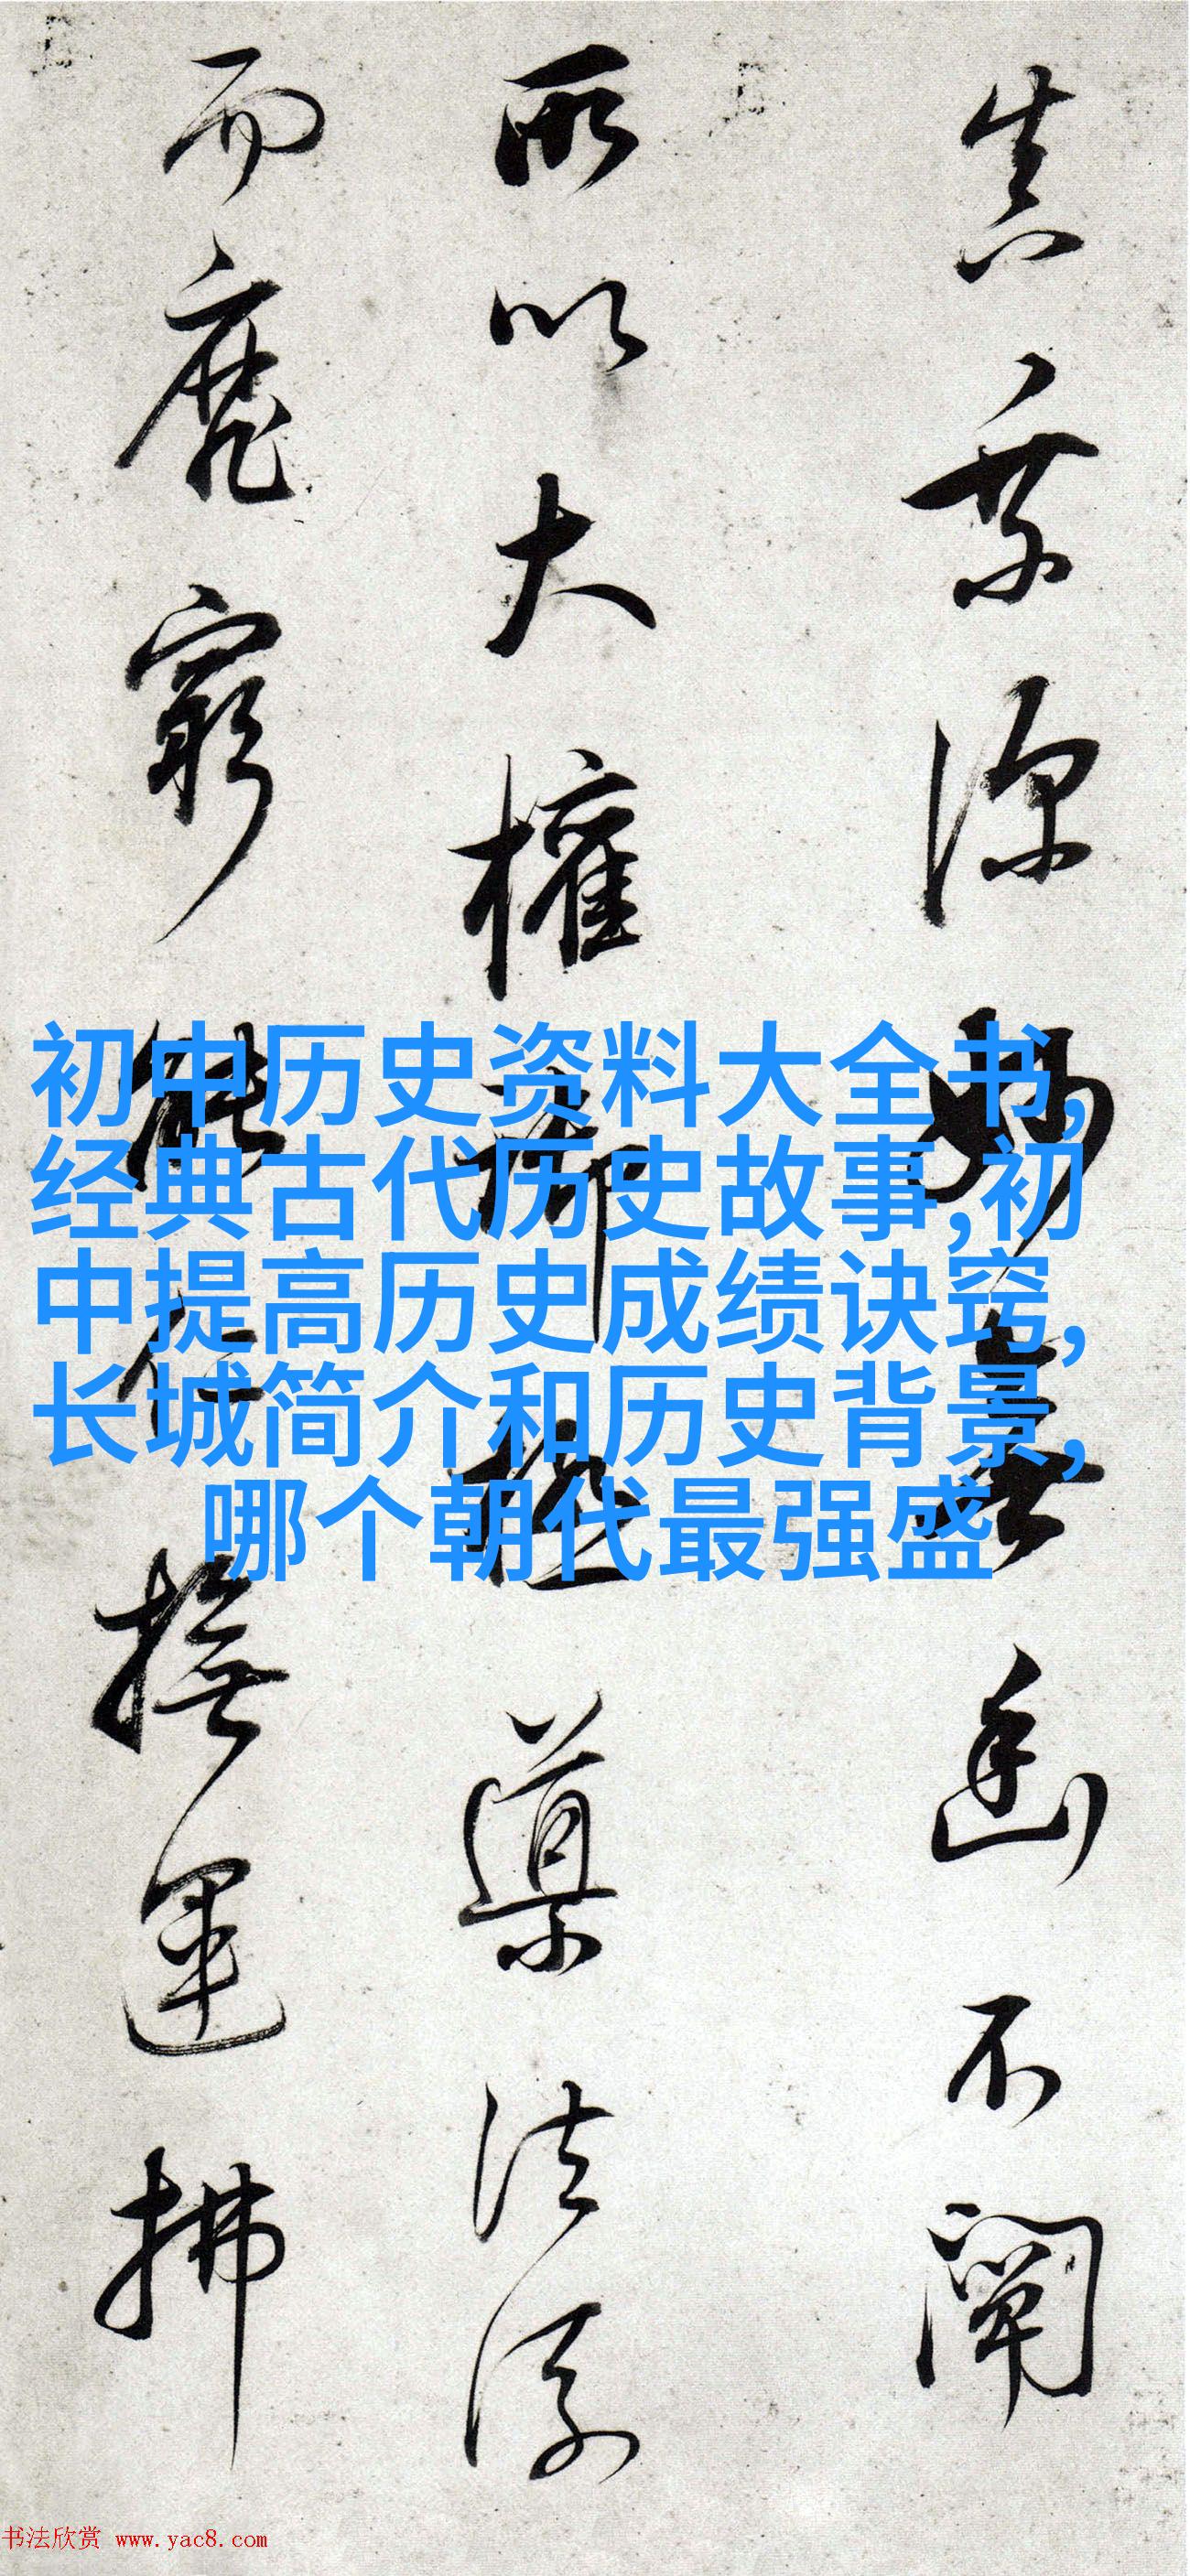 妙無幽不闡
所以大權御極導法流
而靡窮能仁撫運拂
初中历史资料大全书,
经典古代历史故事,初
中提高历史成绩诀窍,
长城简介和历史背景,
哪个朝代最强盛
书法欣赏 www.yac8.com